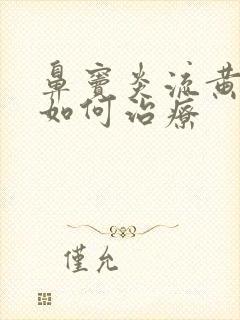 鼻窦炎流黄
如何治療
僅允